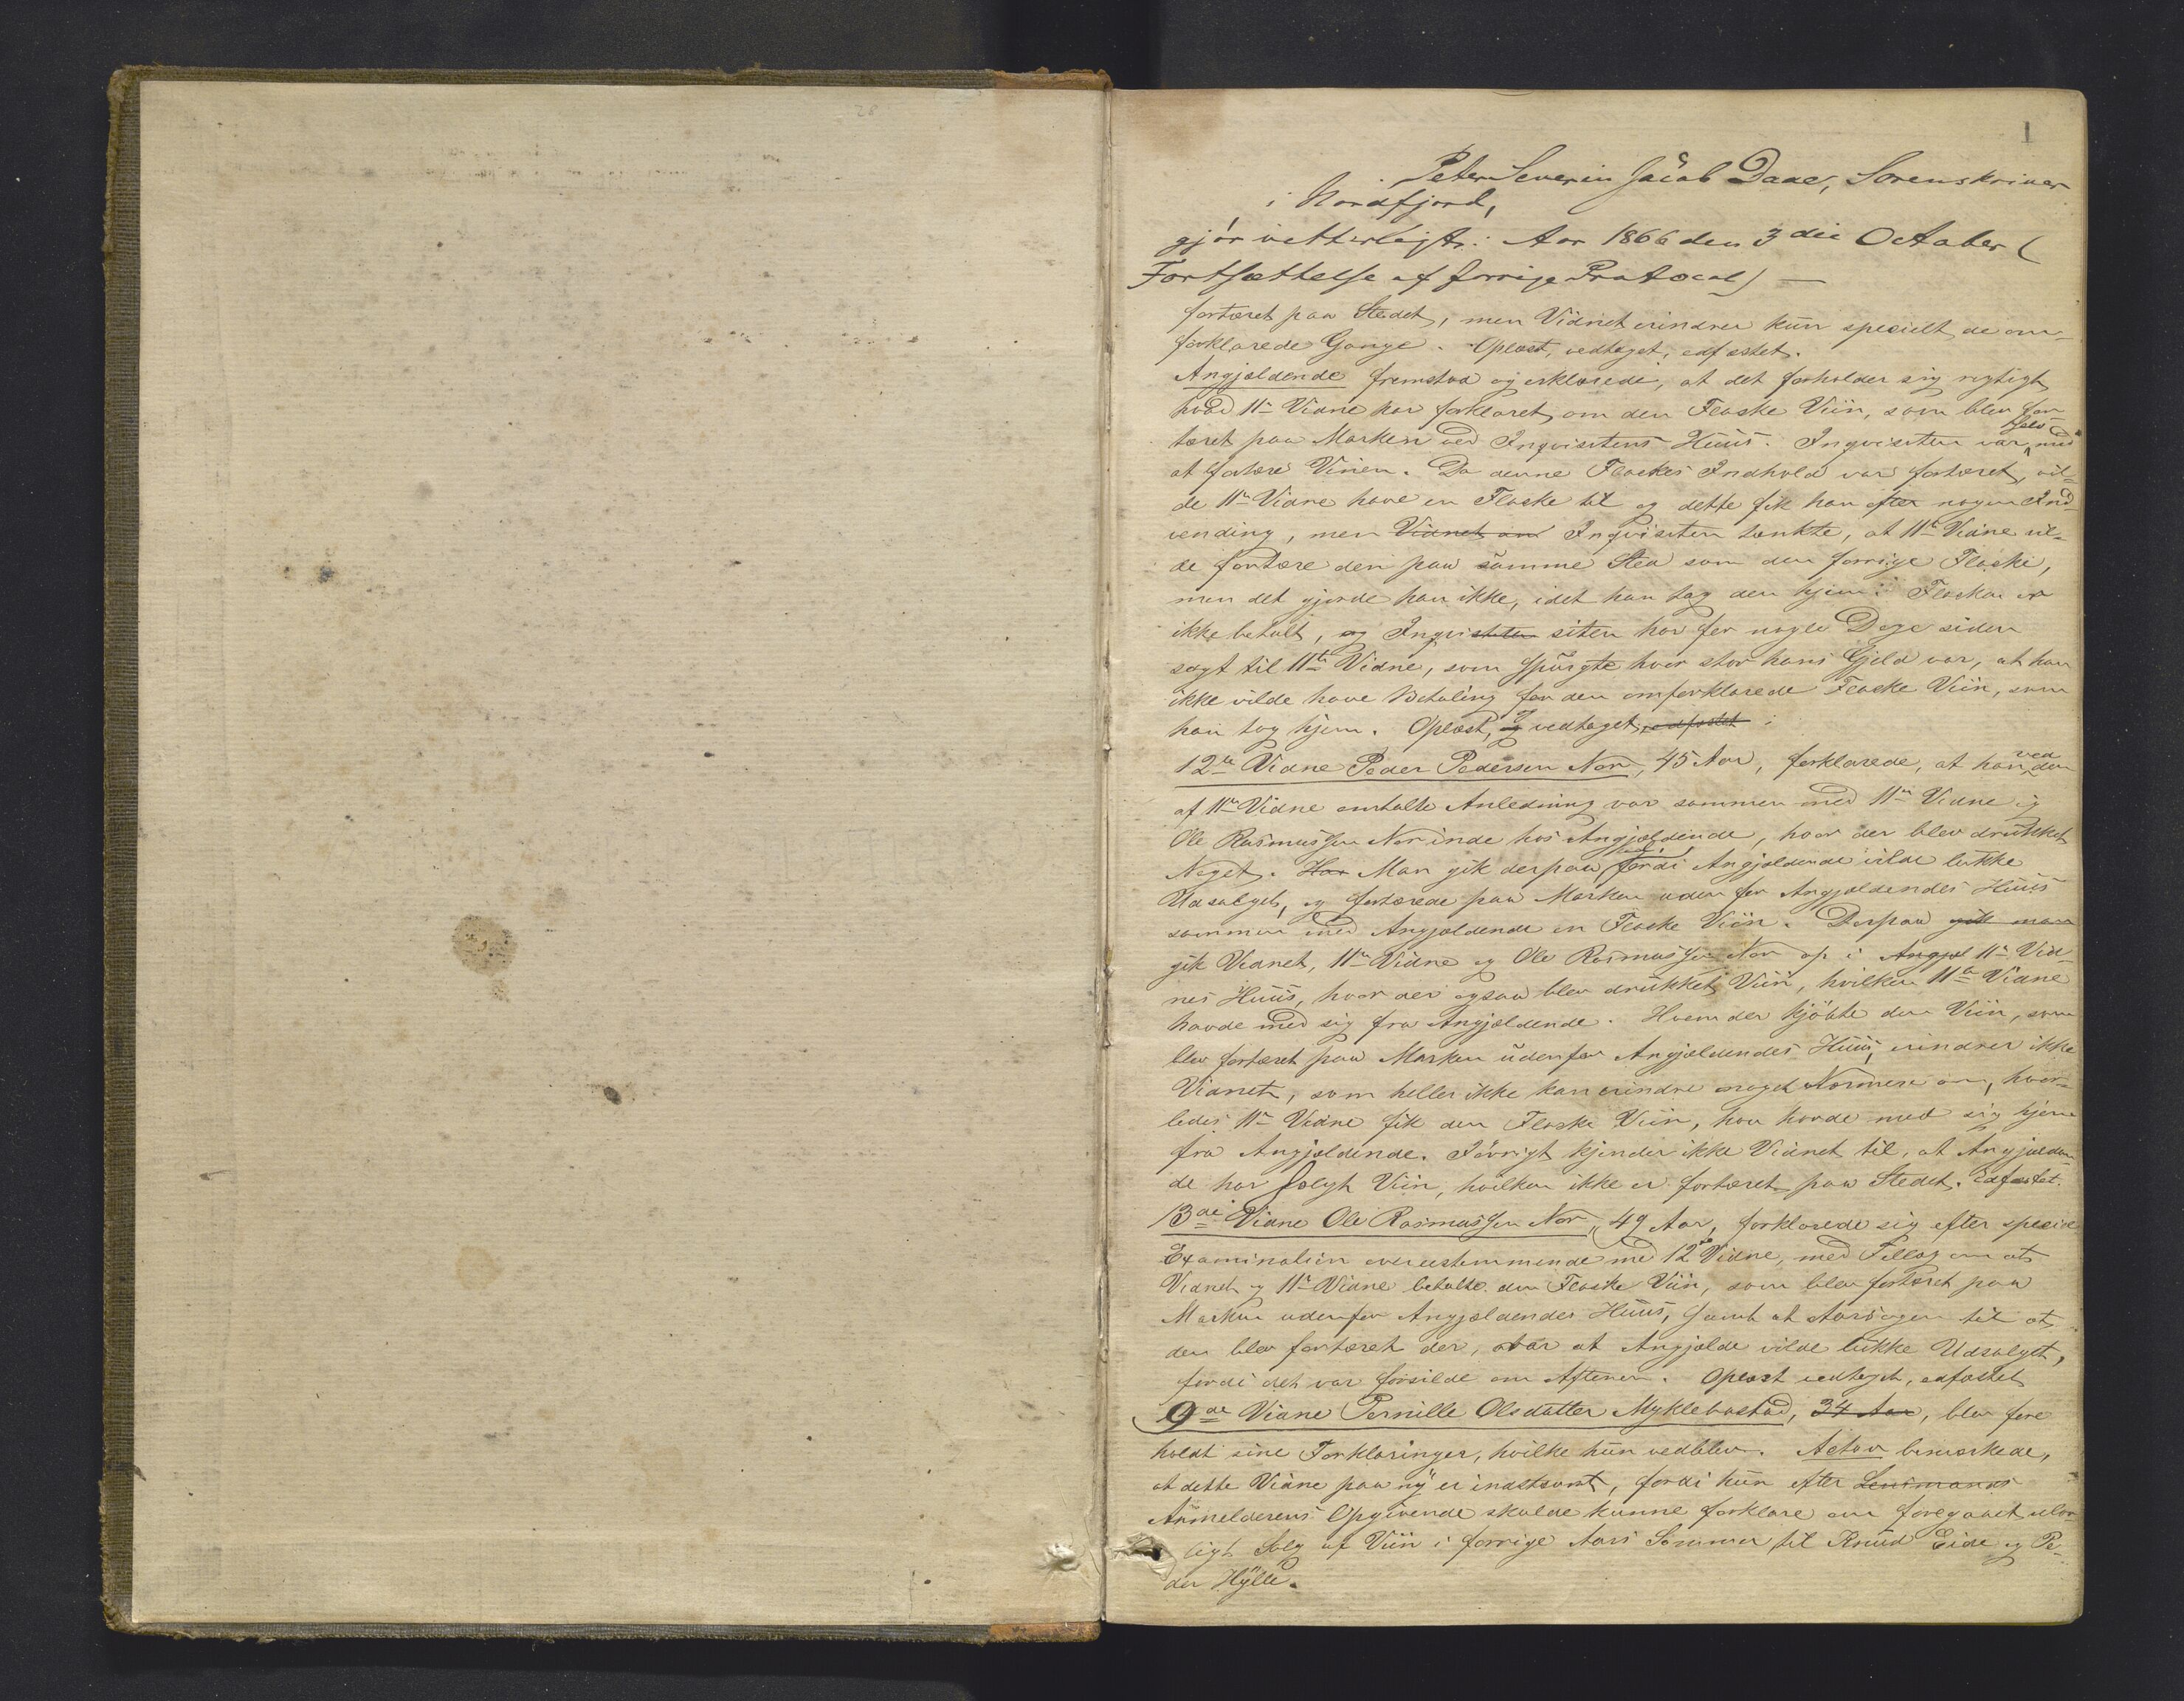 28
1
Peter Severin Jacob Daae, Sorenskriver
i Nordfjord,
gjör vitterligt: Aar 1866 den 3die October (
Fortsættelse af forrige Protocol) —
fortæret paa Stedet, men Vidnet erindrer kun specielt de om-
forklarede Gange. Oplæst, vedtaget, edfæstet.
Angjældende fremstod og erklærede, at det forholder sig rigtigt,
hvad 11te Vidne har forklaret om den Flaske Viin, som blev for-
tæret paa Marken ved Inqvisitens Huus. Inqvisiten var selv med
at fortære Vinen. Da denne Flaskes Indhold var fortæret, vil-
de 11te Vidne have en Flaske til og dette fik han efter nogen Ind-
vending, men Vidnet an Inqvisiten tænkte, at 11te Vidne vil-
de fortære den paa samme Sted som den forrige Flaske,
men det gjorde han ikke, idet han tog den hjem. Flasken er
ikke betalt, og Inqvisiten siten har for nogle Dage siden
sagt til 11te Vidne, som spurgte hvor stor hans Gjeld var, at han
ikke vilde have Betaling for den omforklarede Flaske Viin, som
han tog hjem. Oplæst, og vedtaget, edfæstet.
12te Vidne Peder Pedersen Nor, 45 Aar, forklarede, at han ved den
af 11te Vidne omtalte Anledning var sammen med 11te Vidne og
Ole Rasmussen Nor inde hos Angjældende, hvor der blev drukket
Noget. Har Man gik derpaa, fordi Angjældende vilde lukke
Udsalget, og fortærede paa Marken uden for Angjældendes Huus
sammen med Angjældende en Flaske Viin. Derpaa gik man
gik Vidnet, 11te Vidne og Ole Rasmussen Nor op i Angjæl 11te Vid-
nes Huus, hvor der ogsaa blev drukket Viin, hvilken 11te Vidne
havde med sig fra Angjældende. Hvem der kjöbte den Viin, som
blev fortæret paa Marken udenfor Angjældendes Huus, erindrer ikke
Vidnet, som heller ikke kan erindre noget Nærmere om, hvor-
ledes 11te Vidne fik den Flaske Viin, han havde med sig hjem
fra Angjældende. Iövrigt kjender ikke Vidnet til, at Angjælden-
de har solgt Viin, hvilken ikke er fortæret paa Stedet. Edfæstet.
13de Vidne Ole Rasmussen Nor, 49 Aar, forklarede sig efter speciel
Examination overeestemmende med 12te Vidne, med Tillæg om at
Vidnet og 11te Vidne betalte den Flaske Viin, som blev fortæret paa
Marken udenfor Angjældendes Huus, samt at Aarsagen til at
den blev fortæret der, var at Angjælde vilde lukke Udsalget,
fordi det var forsilde om Aftenen. Oplæst vedtaget, edfæstet
9de Vidne Pernille Olsdatter Myklebustad, 34 Aar, blev fore
holdt sine Forklaringer, hvilke hun vedblev. Actor bemærkede,
at dette Vidne paa ny er indstævnt, fordi hun efter Lensmands
Anmelderens Opgivende skulde kunne forklare om foregaaet ulov-
ligt Salg af Viin i forrige Aars Sommer til Knud Eide og Pe-
der Hylle.